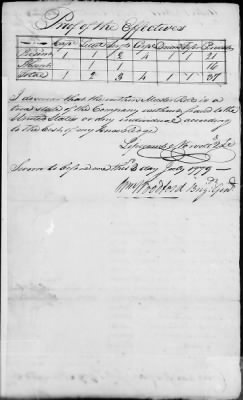 Proof of the Effectives
Capt Lieut Serjts Corpl Drum Fifer Privates
Present 1 1 2 4 1 1 21
Absent 1 1 16
Total 1 2 3 4 1 1 37
I do swear that the within Muster Roll is a
true state of the Company without fraud to the
United States or any individual according
to the best of my knowledge
Sworn to before me this 2 day July 1779
Wm Woodford Brigr Genl